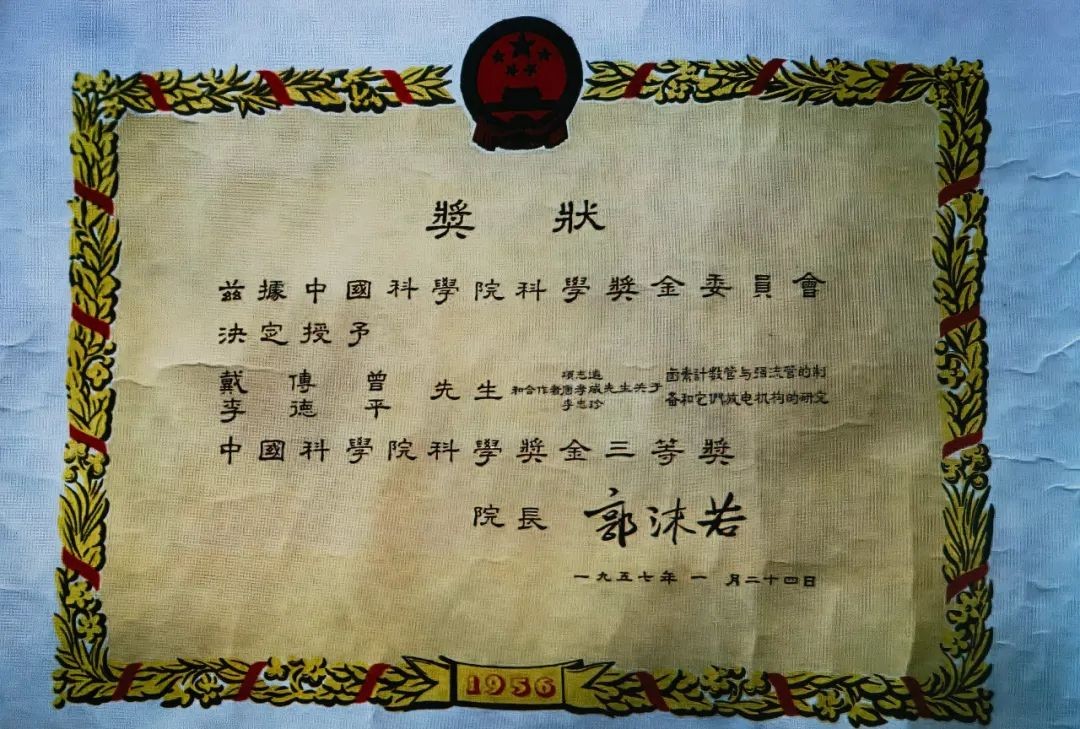 獎狀
茲據中國科學院科學獎金委員會
決定授予
戴傳曾
李德平
先生
和合作者
項志遴
唐孝威
李忠珍
先生关于
卤素計數管与强流管的制
备和它們放电机构的研究
中國科學院科學獎金三等獎
院長 郭沫若
一九五七年一月二十四日
1956